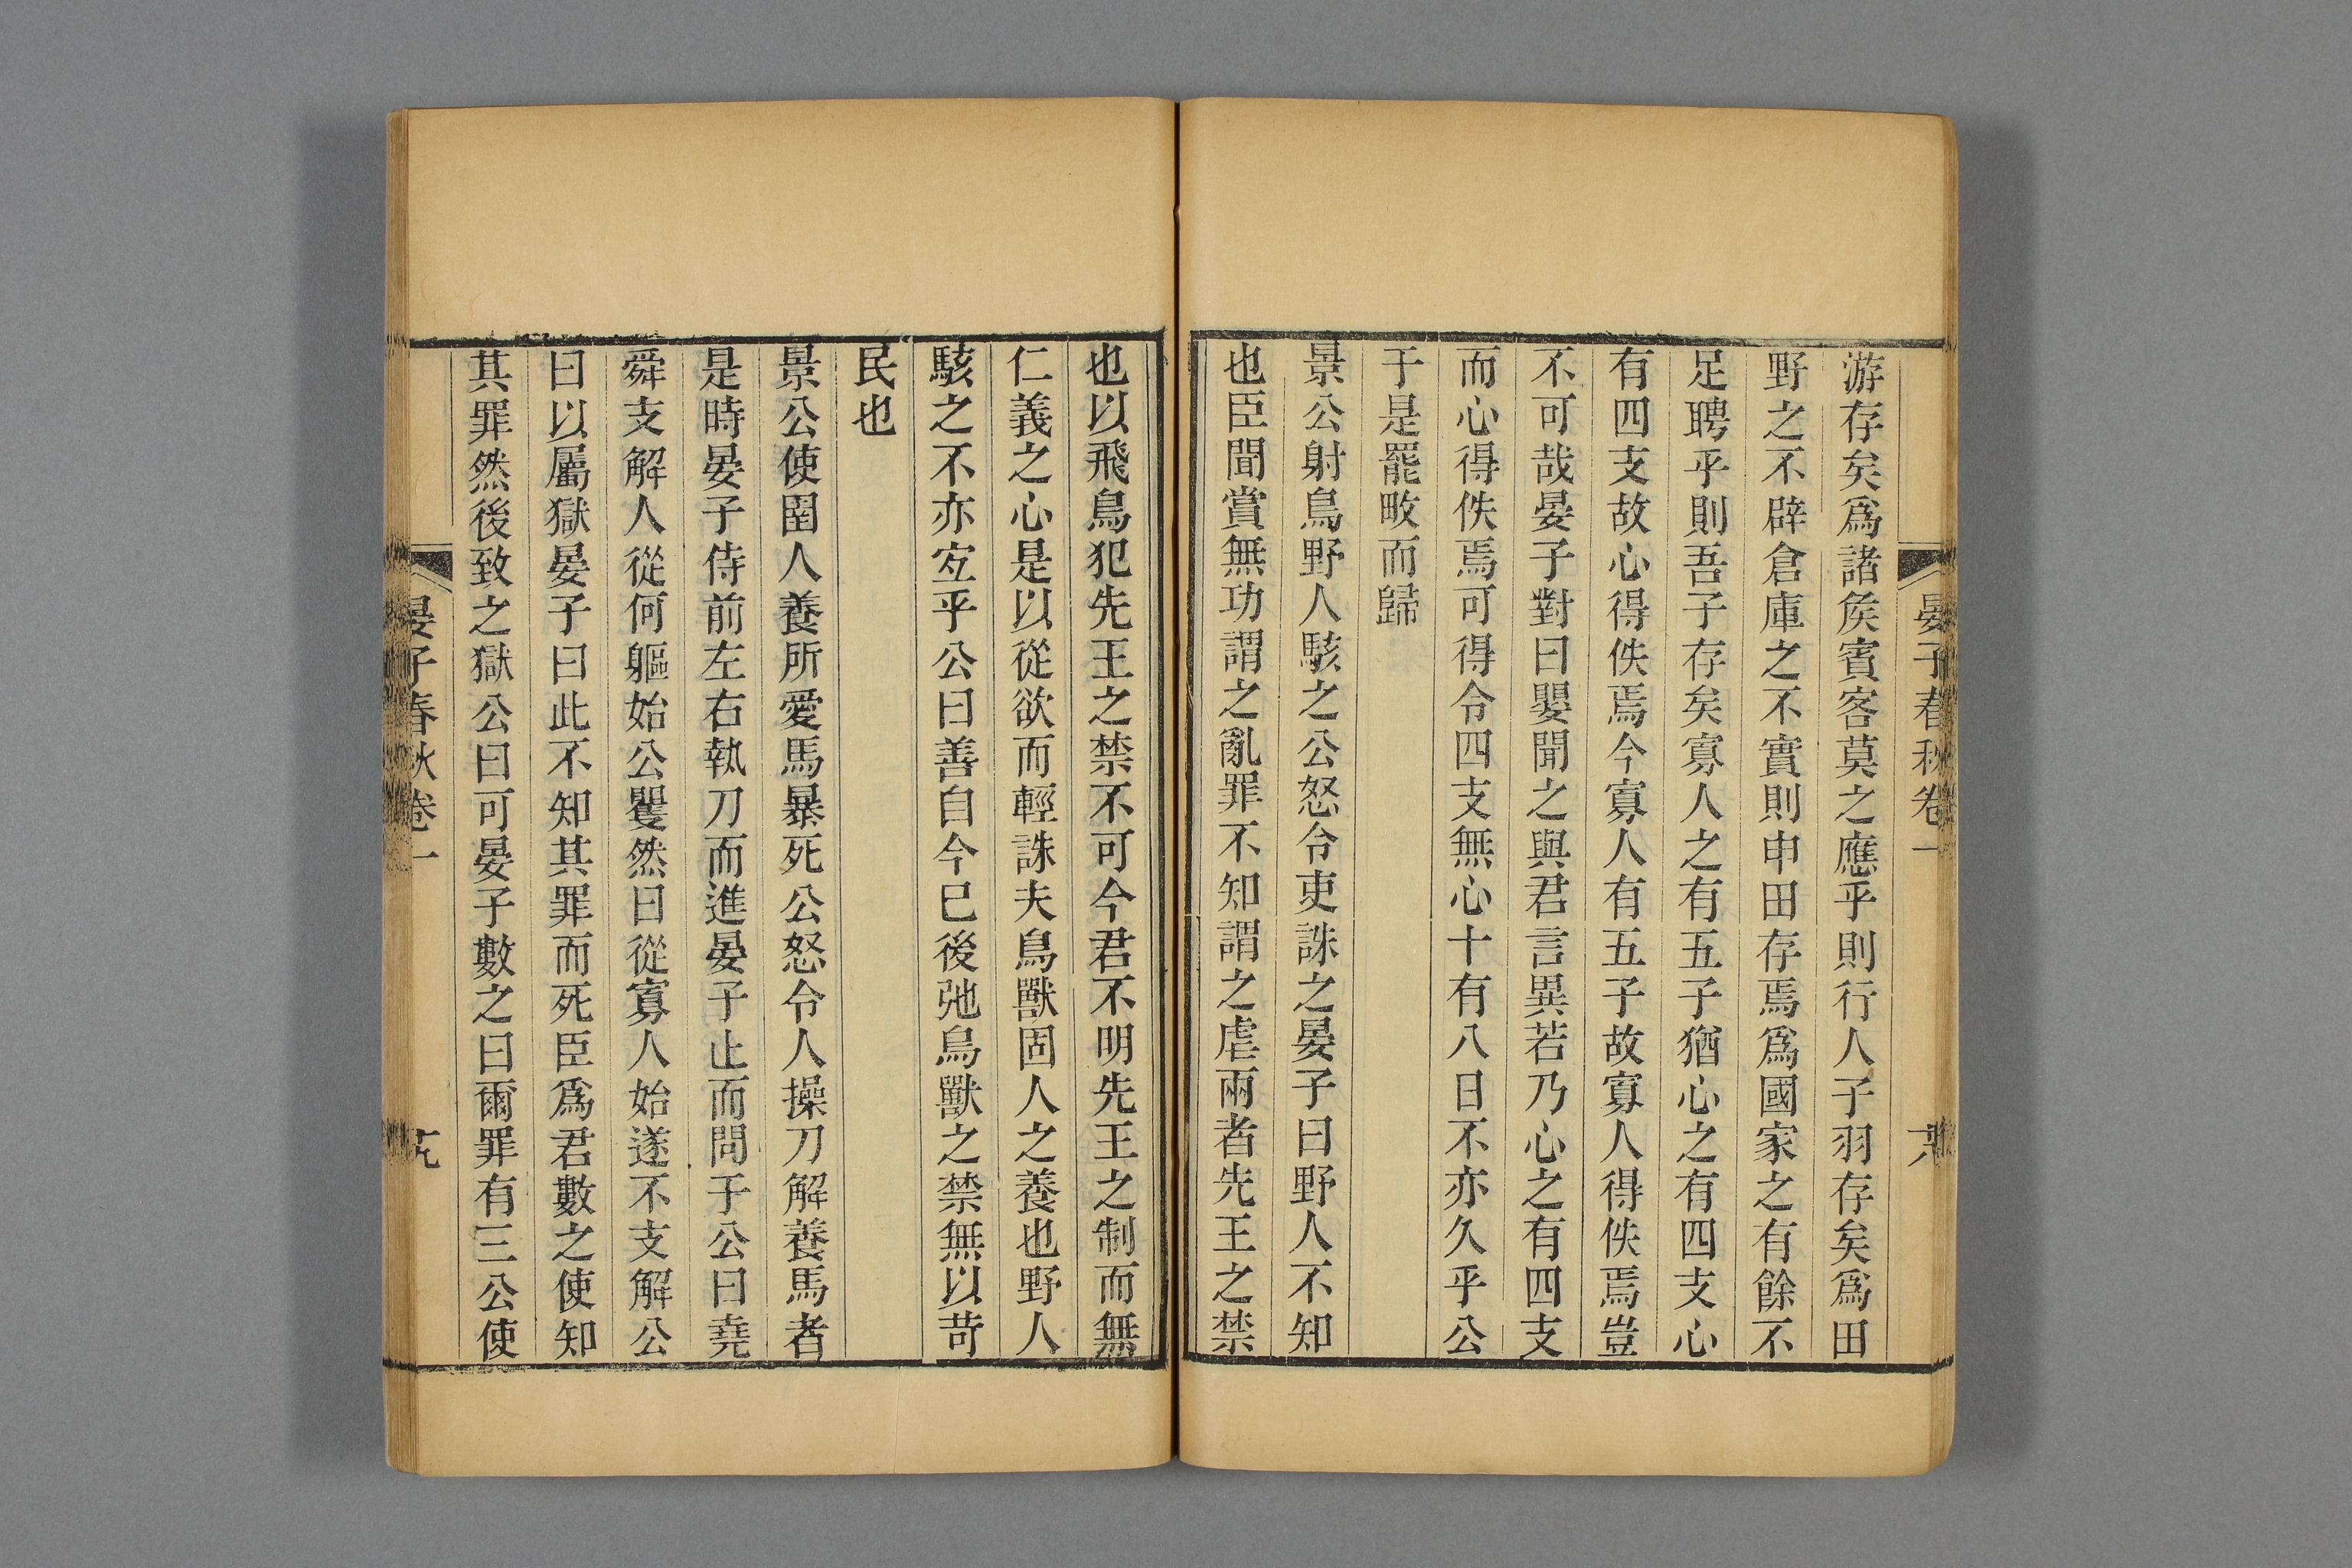 晏子春秋卷一
六
游存矣爲諸矦賓客莫之應乎則行人子羽存矣爲田
野之不辟倉庫之不實則申田存焉爲國家之有餘不
足聘乎則吾子存矣寡人之有五子猶心之有四支心
有四支故心得佚焉今寡人有五子故寡人得佚焉豈
不可哉晏子對曰嬰聞之與君言異若乃心之有四支
而心得佚焉可得令四支無心十有八日不亦久乎公
于是罷畋而歸
景公射鳥野人駭之公怒令吏誅之晏子曰野人不知
也臣聞賞無功謂之亂罪不知謂之虐兩者先王之禁
也以飛鳥犯先王之禁不可今君不明先王之制而無
仁義之心是以從欲而輕誅夫鳥獸固人之養也野人
駭之不亦宐乎公曰善自今已後弛鳥獸之禁無以苛
民也
景公使圉人養所愛馬暴死公怒令人操刀解養馬者
是時晏子侍前左右執刀而進晏子止而問于公曰堯
舜支解人從何軀始公矍然曰從寡人始遂不支解公
曰以屬獄晏子曰此不知其罪而死臣爲君數之使知
其罪然後致之獄公曰可晏子數之曰爾罪有三公使
晏子春秋卷一